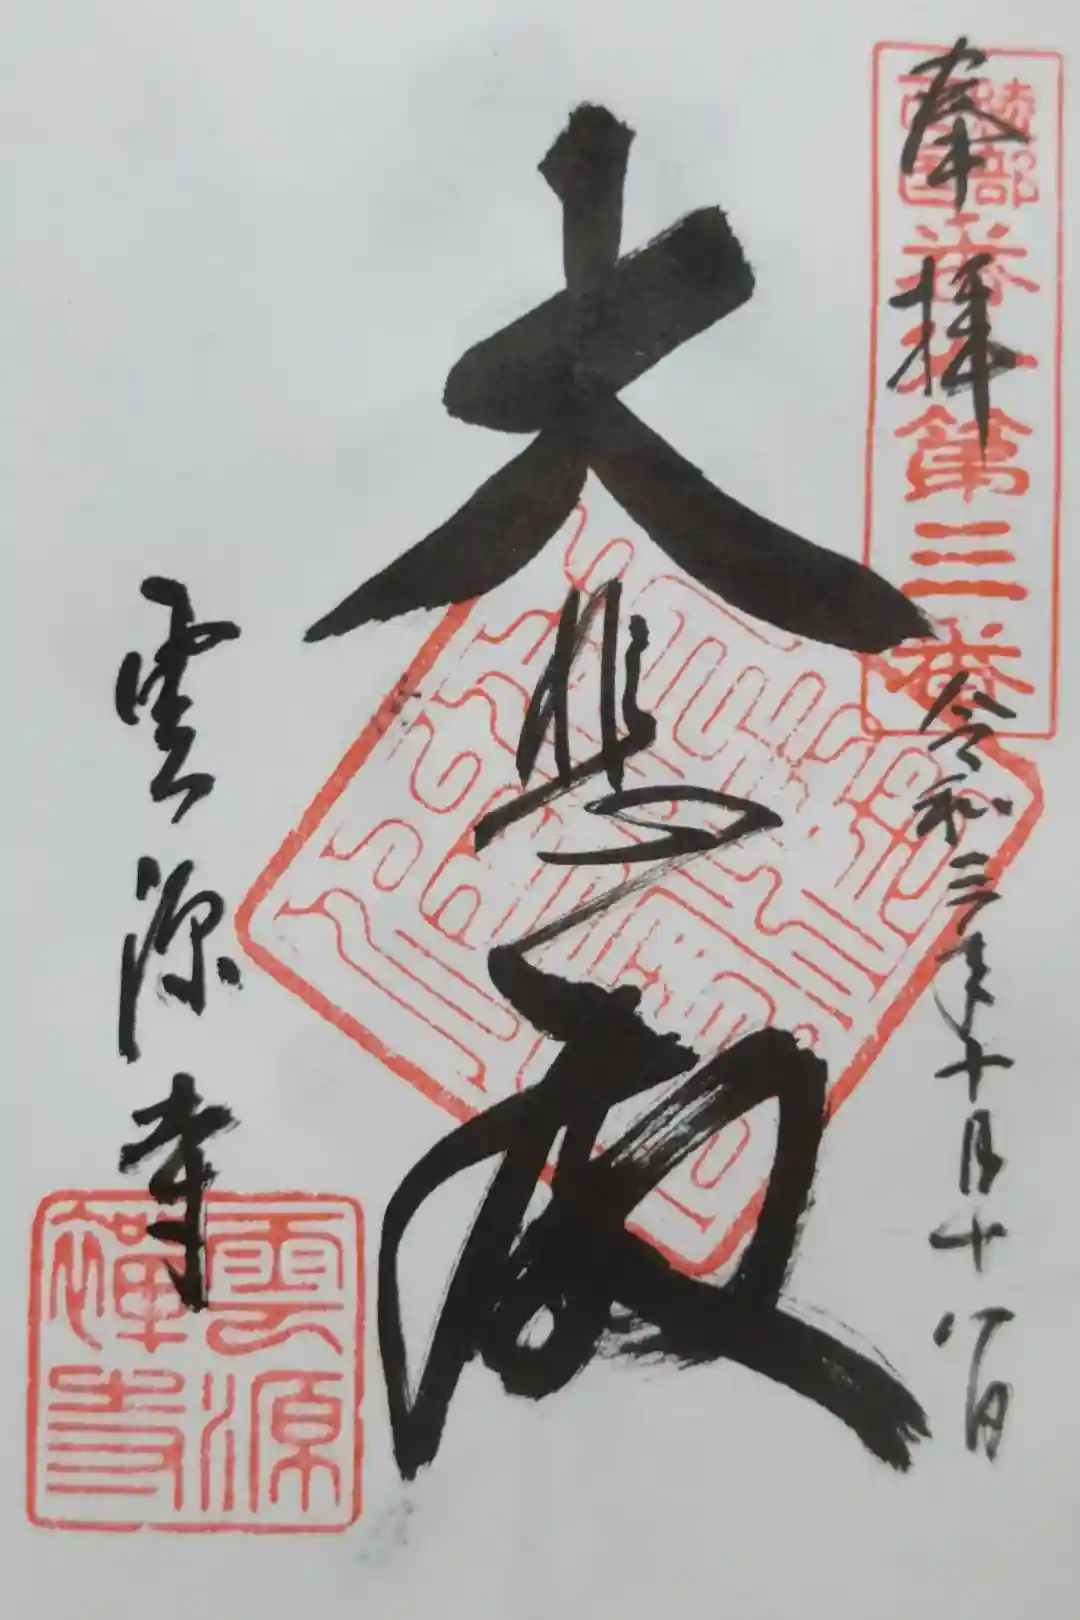 奉拝
綾部
西国
番外第三番
令和三年十月十八日
大悲殿
雲源寺
雲源
禅寺